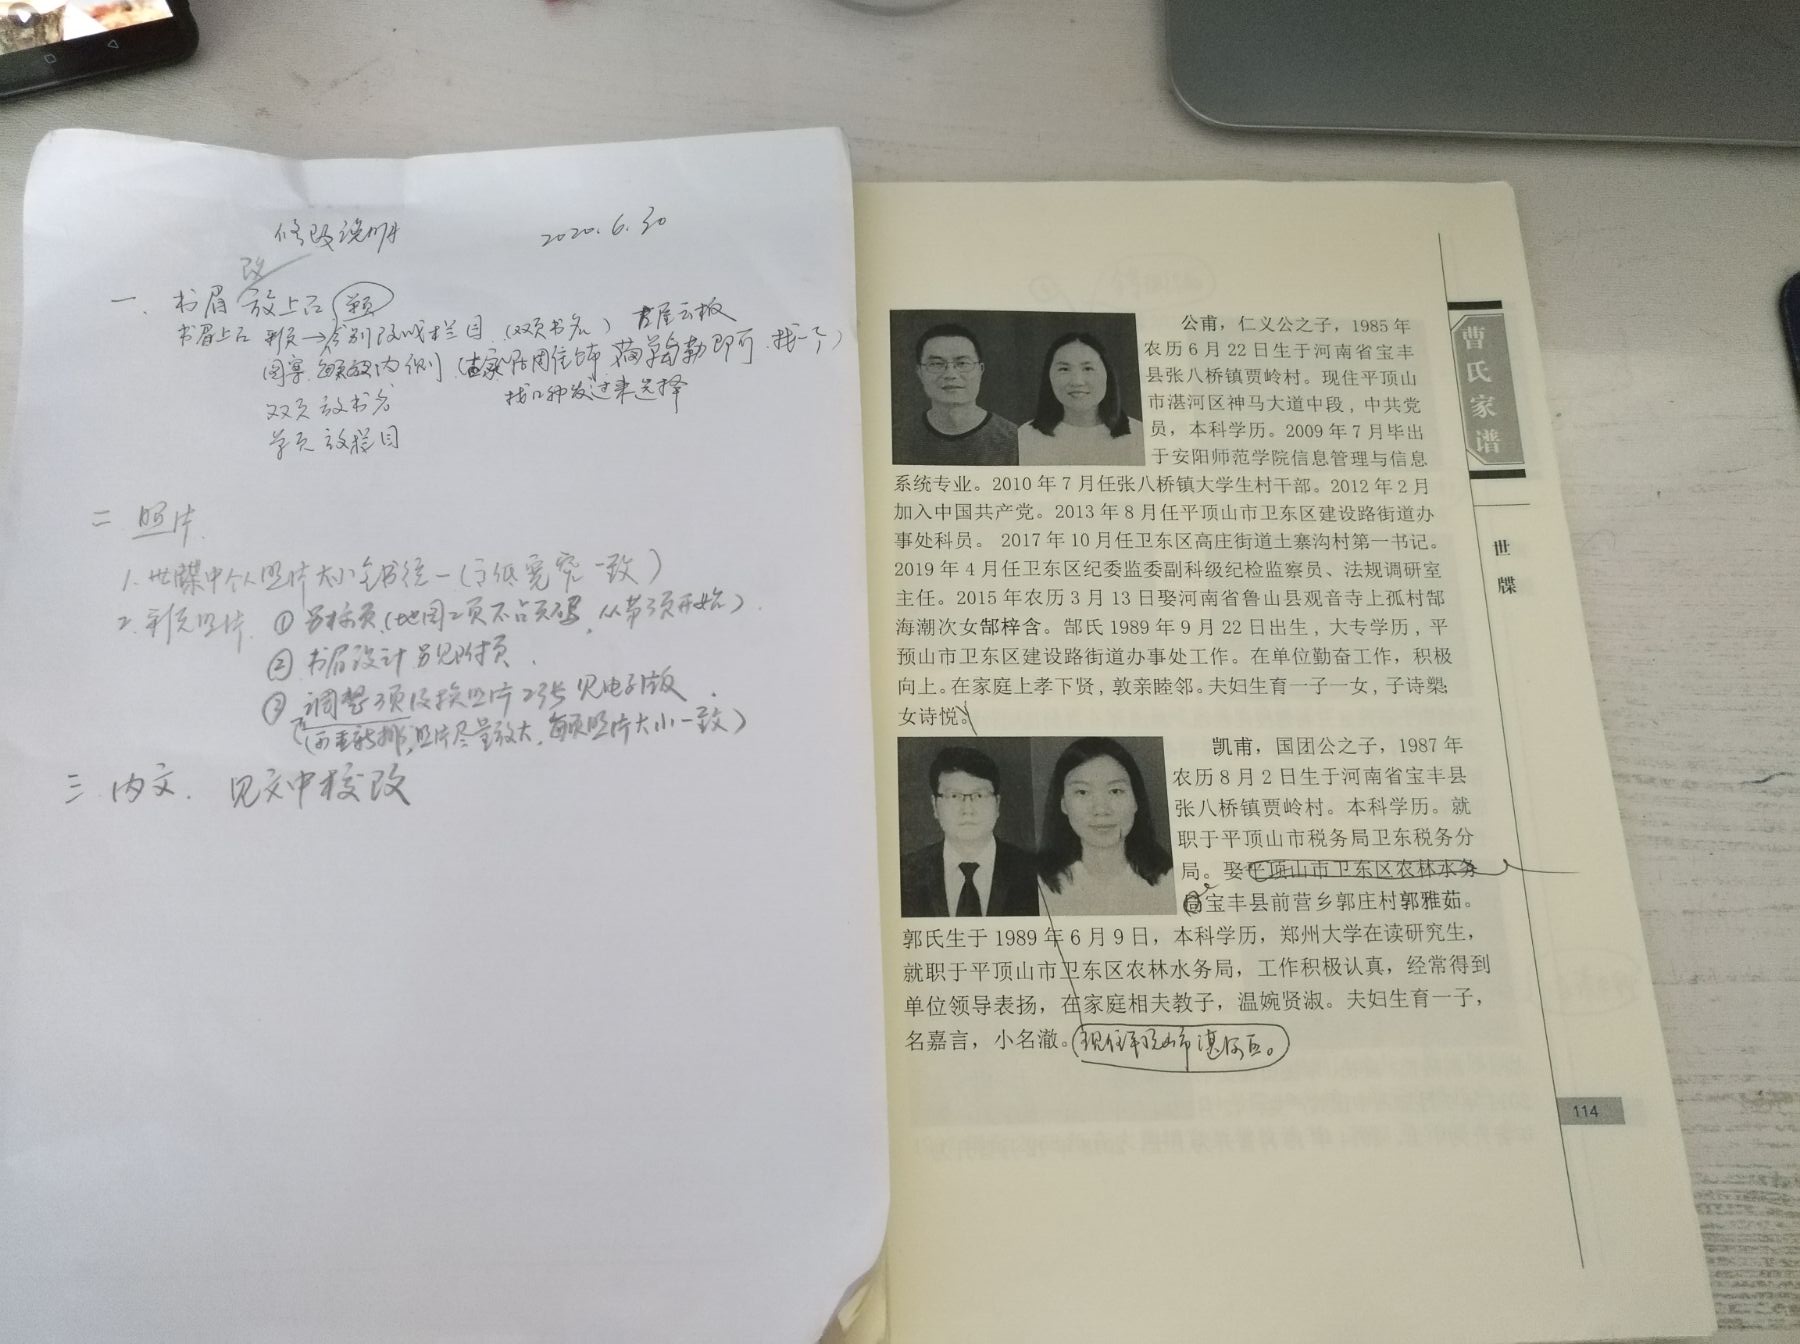 修改说明 2020.6.30
改
一、书眉 放上口 单页
书眉上口 彩页→分别改成栏目（双页书名）
图案 每页放内侧 即可 找一个）
双页放书名 找几种发过来选择
单页放栏目
二 照片
1. 世牒中个人照片大小全书统一（高低宽窄一致）
2. 彩页照片 ① 另标页（地图2页不占页码，从第3页开始）.
② 书眉设计另见附页.
③ 调整3页及换照片2张见电子版.
（可重新排，照片尽量放大，每页照片大小一致）
三. 内文. 见文中校改
公甫，仁义公之子，1985 年
农历 6 月 22 日生于河南省宝丰
县张八桥镇贾岭村。现住平顶山
市湛河区神马大道中段，中共党
员，本科学历。2009 年 7 月毕出
于安阳师范学院信息管理与信息
系统专业。2010 年 7 月任张八桥镇大学生村干部。2012 年 2 月
加入中国共产党。2013 年 8 月任平顶山市卫东区建设路街道办
事处科员。 2017 年 10 月任卫东区高庄街道土寨沟村第一书记。
2019 年 4 月任卫东区纪委监委副科级纪检监察员、法规调研室
主任。2015 年农历 3 月 13 日娶河南省鲁山县观音寺上孤村郜
海潮次女郜梓含。郜氏 1989 年 9 月 22 日出生，大专学历，平
预山市卫东区建设路街道办事处工作。在单位勤奋工作，积极
向上。在家庭上孝下贤，敦亲睦邻。夫妇生育一子一女，子诗槊;
女诗悦。
凯甫，国团公之子，1987 年
农历 8 月 2 日生于河南省宝丰县
张八桥镇贾岭村。本科学历。就
职于平顶山市税务局卫东税务分
局。娶平顶山市卫东区农林水务
局宝丰县前营乡郭庄村郭雅茹。
郭氏生于 1989 年 6 月 9 日，本科学历，郑州大学在读研究生，
就职于平顶山市卫东区农林水务局，工作积极认真，经常得到
单位领导表扬，在家庭相夫教子，温婉贤淑。夫妇生育一子，
名嘉言，小名澈。现住平顶山市湛河区。
曹氏家谱
世牒
114